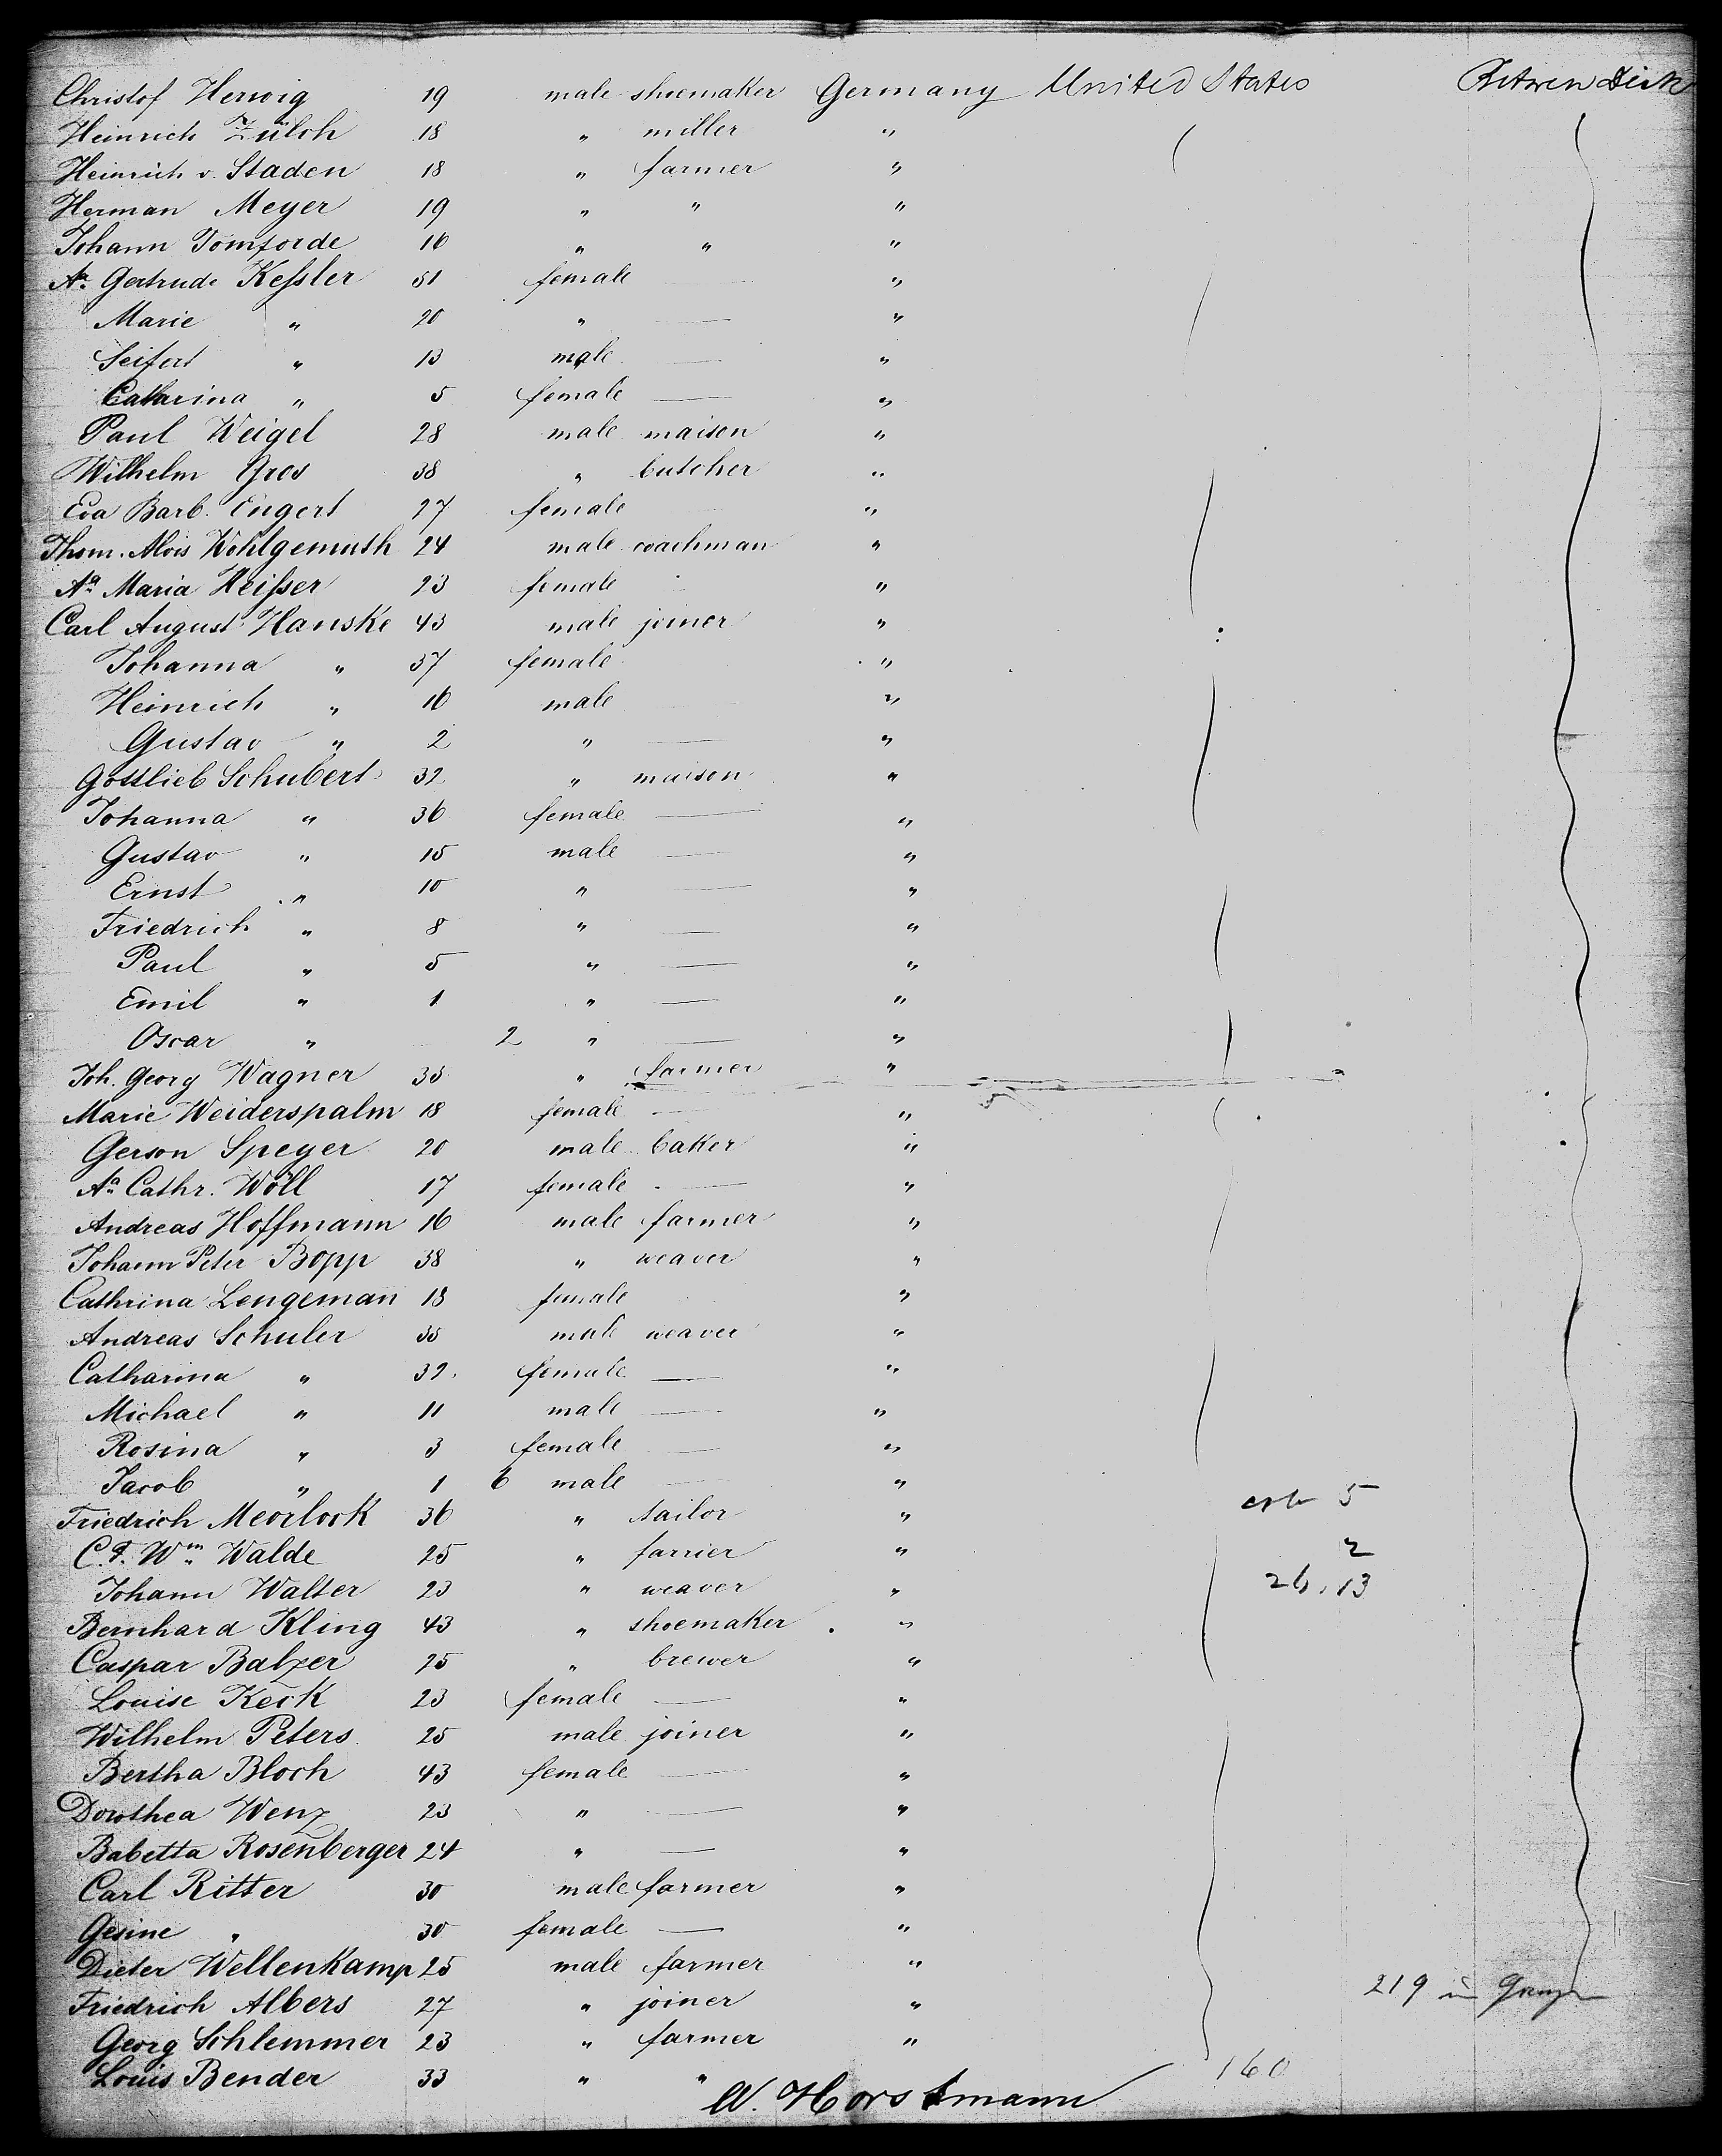 Christof Herwig 19 male shoemaker Germany United States Zwischen Deck
Heinrich Zülch 18 " miller "
Heinrich v. Staden 18 " farmer "
Herman Meyer 19 " " "
Johann Tomforde 16 " " "
Aa. Gertrude Kessler 51 female — "
Marie " 20 " — "
Seifert " 13 male — "
Catharina " 5 female — "
Paul Weigel 28 male maison "
Wilhelm Gros 38 " butcher "
Eva Barb. Engert 27 female "
Thom. Alois Wohlgemuth 24 male coachman "
Aa. Maria Heisser 23 female "
Carl August Hanske 43 male joiner "
Johanna " 37 female "
Heinrich " 16 male "
Gustav " 2 " — "
Gottlieb Schubert 32 " maison "
Johanna " 36 female — "
Gustav " 15 male — "
Ernst " 10 " — "
Friedrich " 8 " — "
Paul " 5 " — "
Emil " 1 " — "
Oscar " 2 " — "
Joh. Georg Wagner 35 " farmer "
Marie Weiderspalm 18 female — "
Gerson Speyer 20 male baker "
Aa. Cathr. Wöll 17 female — "
Andreas Hoffmann 16 male farmer "
Johann Peter Bopp 38 " weaver "
Cathrina Lengeman 18 female "
Andreas Schuler 35 male weaver "
Catharina " 32. female — "
Michael " 11 male — "
Rosina " 3 female — "
Jacob " 1 6 male — "
Friedrich Meorlock 36 " tailor " 5
C. F. Wm. Walde 25 " farrier " 2
Johann Walter 23 " weaver " 26.13
Bernhard Kling 43 " shoemaker "
Caspar Balzer 25 " brewer "
Louise Keck 23 female — "
Wilhelm Peters. 25 male joiner "
Bertha Bloch 43 female — "
Dorothea Wenz 23 " — "
Babetta Rosenberger 24 " — "
Carl Ritter 30 male farmer "
Gesine " 30 female — "
Dieter Wellenkamp 25 male farmer "
Friedrich Albers 27 " joiner " 219 in Ganzen
Georg Schlemmer 23 " farmer "
Louis Bender 33 " " 160
W. Horstmann